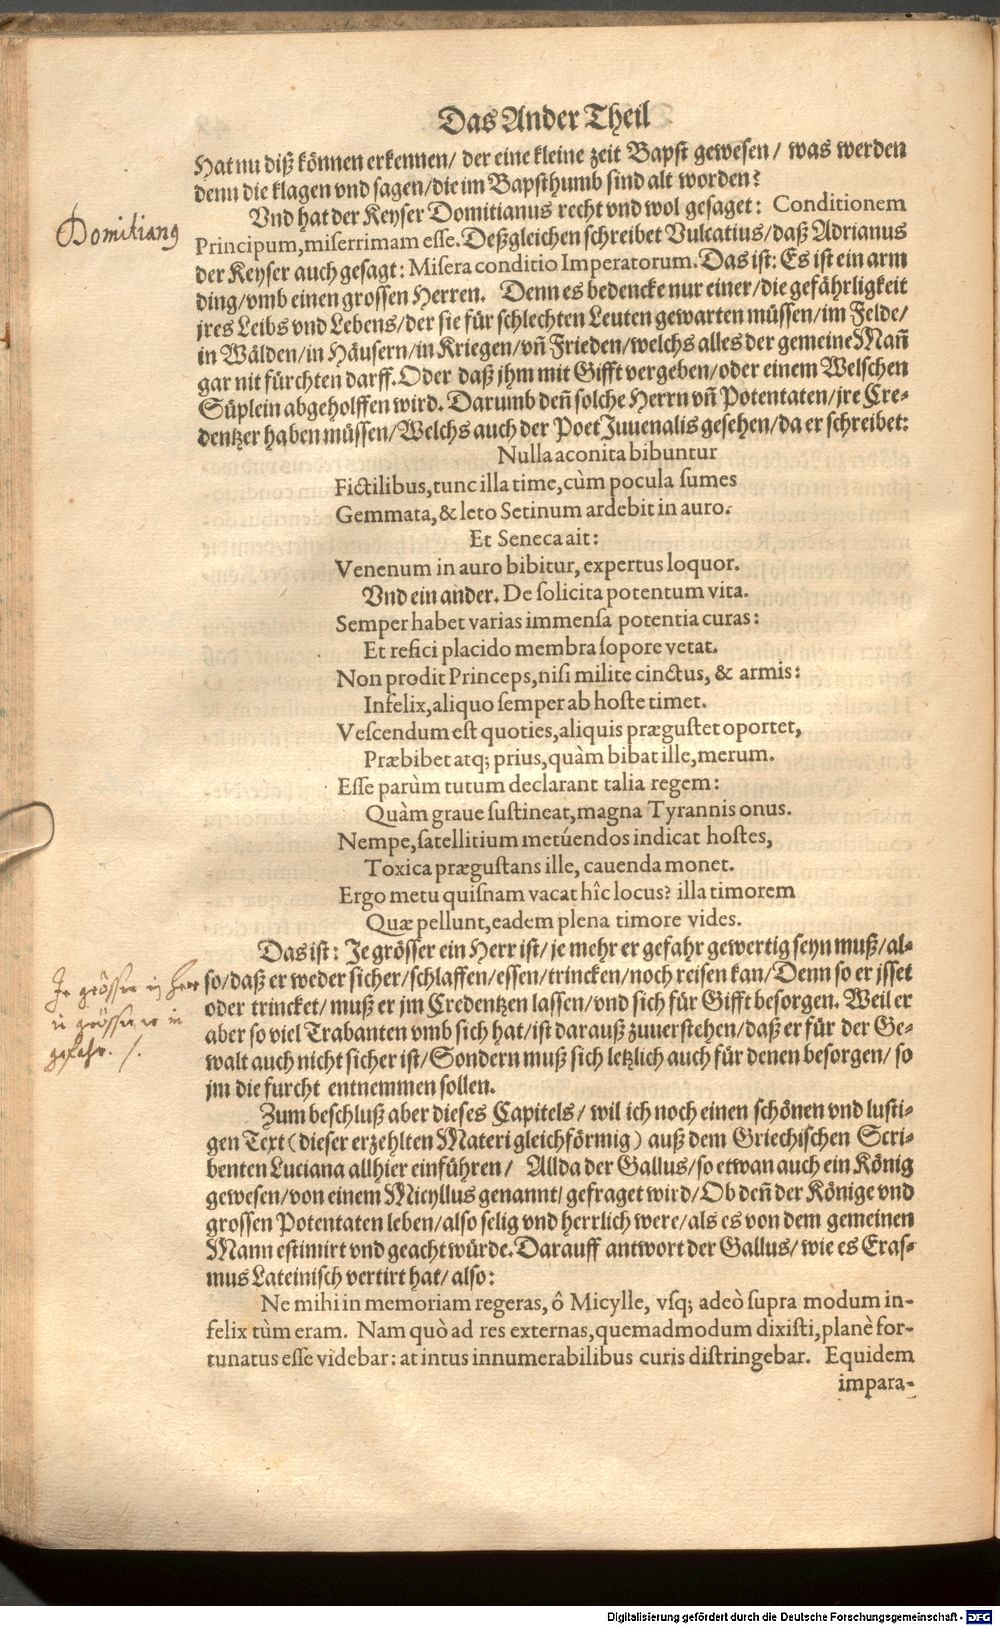 Das Ander Theil
Hat nu diß können erkennen/ der eine kleine zeit Bapst gewesen/ was werden
denn die klagen vnd sagen/die im Bapsthumb sind alt worden?
Vnd hat der Keyser Domitianus recht vnd wol gesaget: Conditionem
Domitianus
Principum,miserrimam esse. Deßgleichen schreibet Vulcatius/daß Adrianus
der Keyser auch gesagt: Misera conditio Imperatorum. Das ist: Es ist ein arm
ding/vmb einen grossen Herren. Denn es bedencke nur einer/die gefährligkeit
jres Leibs vnd Lebens/der sie für schlechten Leuten gewarten müssen/im Felde/
in Wälden/in Häusern/in Kriegen/vñ Frieden/welchs alles der gemeine Mañ
gar nit fürchten darff. Oder daß jhm mit Gifft vergeben/oder einem Welschen
Süplein abgeholffen wird. Darumb deñ solche Herrn vñ Potentaten/jre Cre-
dentzer haben müssen/Welchs auch der Poet Juuenalis gesehen/da er schreibet:
Nulla aconita bibuntur
Fictilibus,tunc illa time,cùm pocula sumes
Gemmata,& leto Setinum ardebit in auro.
Et Seneca ait:
Venenum in auro bibitur, expertus loquor.
Vnd ein ander. De solicita potentum vita.
Semper habet varias immensa potentia curas:
Et refici placido membra sopore vetat.
Non prodit Princeps,nisi milite cinctus, & armis:
Infelix,aliquo semper ab hoste timet.
Vescendum est quoties,aliquis prægustet oportet,
Præbibet atq; prius,quàm bibat ille,merum.
Esse parùm tutum declarant talia regem:
Quàm graue sustineat,magna Tyrannis onus.
Nempe,satellitium metúendos indicat hostes,
Toxica prægustans ille, cauenda monet.
Ergo metu quisnam vacat hîc locus? illa timorem
Quæ pellunt,eadem plena timore vides.
Das ist: Je grösser ein Herr ist/je mehr er gefahr gewertig seyn muß/al-
so/daß er weder sicher/schlaffen/essen/trincken/noch reisen kan/Denn so er jsset
oder trincket/ muß er jm Credentzen lassen/vnd sich für Gifft besorgen. Weil er
aber so viel Trabanten vmb sich hat/ist darauß zuuerstehen/daß er für der Ge-
walt auch nicht sicher ist/Sondern muß sich letzlich auch für denen besorgen/ so
jm die furcht entnemmen sollen.
Je grösser in Herr
gefahr. /.
Zum beschluß aber dieses Capitels/ wil ich noch einen schönen vnd lusti-
gen Text (dieser erzehlten Materi gleichförmig) auß dem Griechischen Scri-
benten Luciana allhier einführen/ Allda der Gallus/so etwan auch ein König
gewesen/von einem Micyllus genannt/ gefraget wird/Ob deñ der Könige vnd
grossen Potentaten leben/also selig vnd herrlich were/als es von dem gemeinen
Mann estimirt vnd geacht würde. Darauff antwort der Gallus/ wie es Eras-
mus Lateinisch vertirt hat/ also:
Ne mihi in memoriam regeras, ô Micylle, vsq; adeò supra modum in-
felix tùm eram. Nam quò ad res externas,quemadmodum dixisti,planè for-
tunatus esse videbar: at intus innumerabilibus curis distringebar. Equidem
impara-
Digitalisierung gefördert durch die Deutsche Forschungsgemeinschaft - DFG